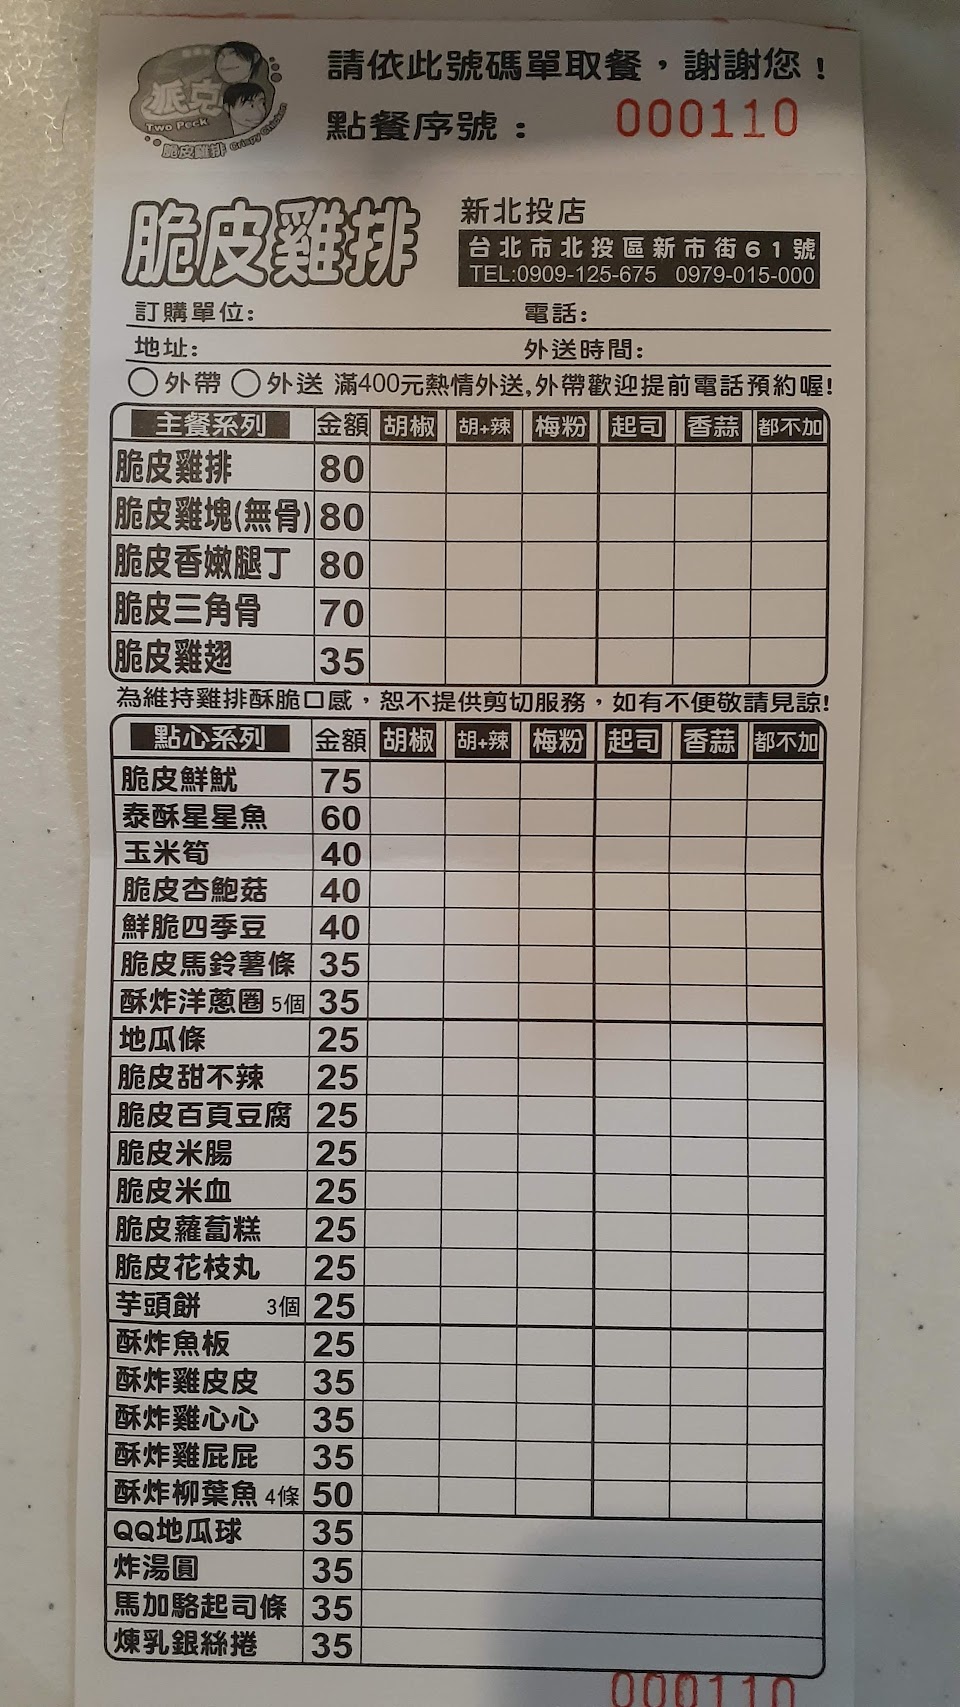 請依此號碼單取餐，謝謝您！
派克
Two Peck
脆皮雞排 Crispy Chicken
點餐序號： 000110
脆皮雞排 新北投店
台北市北投區新市街61號
TEL:0909-125-675 0979-015-000
訂購單位: 電話:
地址: 外送時間:
外帶 外送 滿400元熱情外送,外帶歡迎提前電話預約喔!
主餐系列 金額 胡椒 胡+辣 梅粉 起司 香蒜 都不加
脆皮雞排 80
脆皮雞塊(無骨) 80
脆皮香嫩腿丁 80
脆皮三角骨 70
脆皮雞翅 35
為維持雞排酥脆口感，恕不提供剪切服務，如有不便敬請見諒!
點心系列 金額 胡椒 胡+辣 梅粉 起司 香蒜 都不加
脆皮鮮魷 75
泰酥星星魚 60
玉米筍 40
脆皮杏鮑菇 40
鮮脆四季豆 40
脆皮馬鈴薯條 35
酥炸洋蔥圈 5個 35
地瓜條 25
脆皮甜不辣 25
脆皮百頁豆腐 25
脆皮米腸 25
脆皮米血 25
脆皮蘿蔔糕 25
脆皮花枝丸 25
芋頭餅 3個 25
酥炸魚板 25
酥炸雞皮皮 35
酥炸雞心心 35
酥炸雞屁屁 35
酥炸柳葉魚 4條 50
QQ地瓜球 35
炸湯圓 35
馬加駱起司條 35
煉乳銀絲捲 35
000110